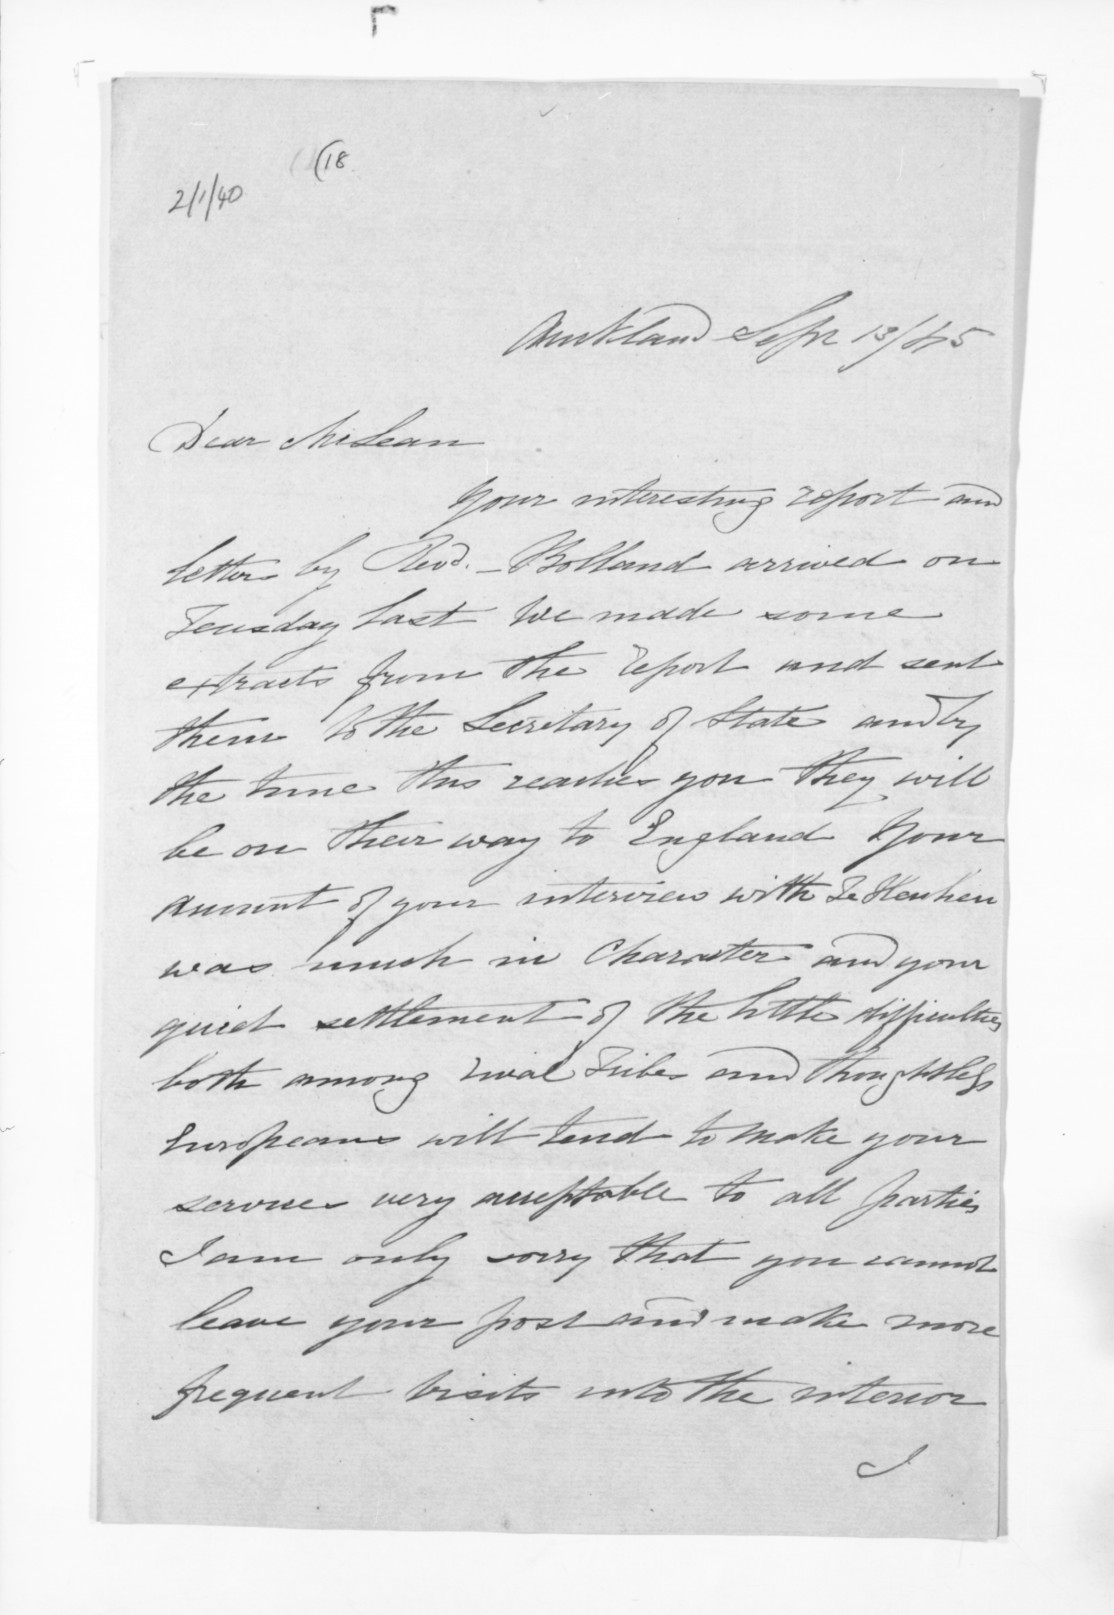 (18
2/1/40
Auckland Sepr 13/45
Dear McLean
Your interesting report and
letter by Revd. Bolland arrived on
Teusday last We made some
extracts from the report and sent
them to the Secretary of State and by
the time this reaches you they will
be on their way to England Your
account of your interview with Te Heuheu
was much in Character and your
quiet settlement of the little difficulties
both among rival Tribes and thoughtless
Europeans will tend to make your
services very acceptable to all parties
I am only sorry that you cannot
leave your post and make more
frequent visits into the interior
I